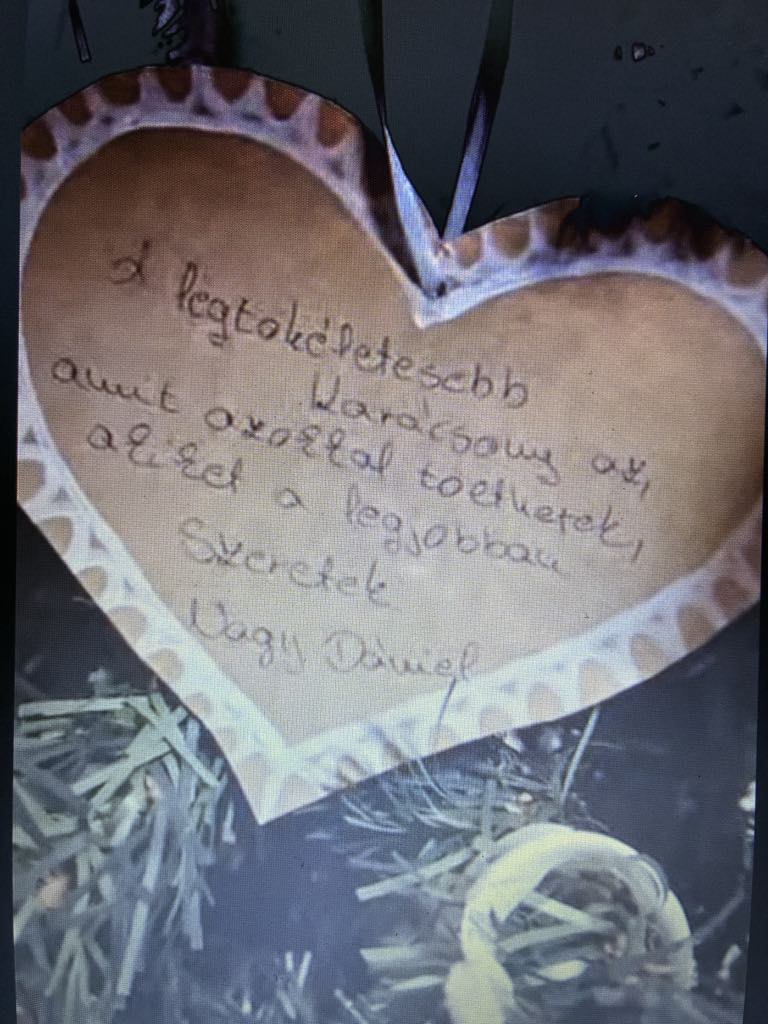 A legtokéletesebb
Karácsony az,
amit azokkal tölthetek,
akiket a legjobban
Szeretek
Nagy Dániel